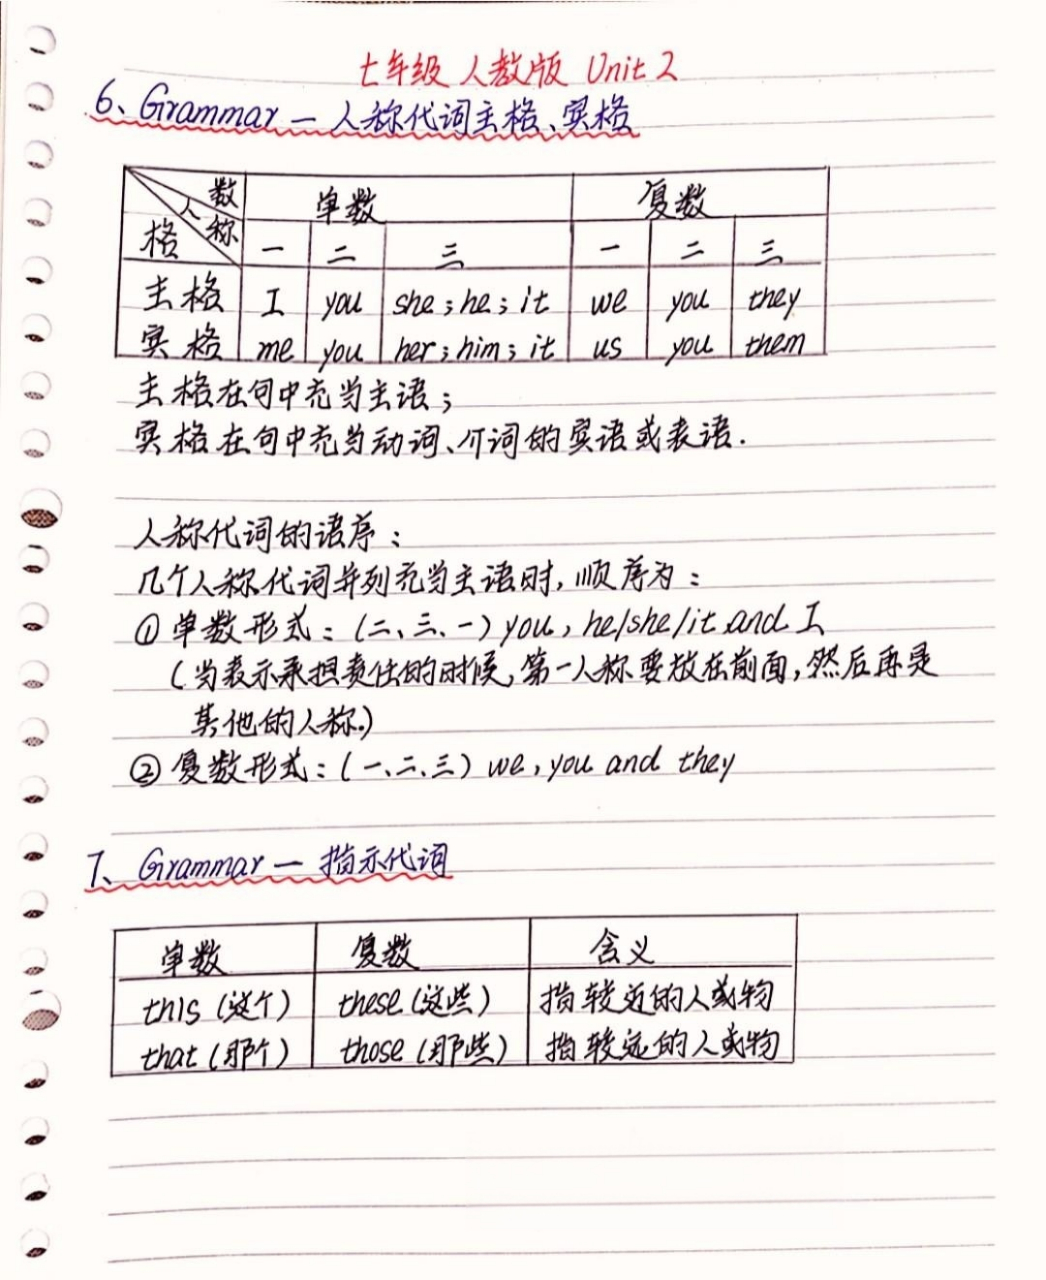 七年级 人教版 Unit 2
6、Grammar — 人称代词主格、宾格
数 单数 复数
人称
格 一 二 三 一 二 三
主格 I you she;he;it we you they
宾格 me you her;him;it us you them
主格在句中充当主语;
宾格在句中充当动词、介词的宾语或表语.
人称代词的语序:
几个人称代词并列充当主语时,顺序为:
① 单数形式:(二、三、一) you, he/she/it and I
(当表示承担责任的时候,第一人称要放在前面,然后再是
其他的人称.)
② 复数形式:(一、二、三) we, you and they
7、Grammar — 指示代词
单数 复数 含义
this (这个) these (这些) 指较近的人或物
that (那个) those (那些) 指较远的人或物